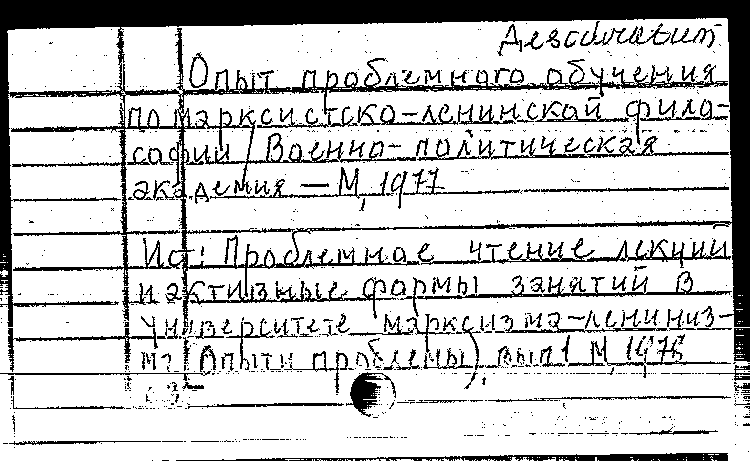 Дезидерат
Опыт проблемного обучения
по марксистско-ленинской фило-
софии / Военно-политическая
академия — М, 1977
Ист: Проблемное чтение лекций
и активные формы занятий в
университете марксизма-лениниз-
ма (Опыт и проблемы), вып 1 М, 1976
с 3